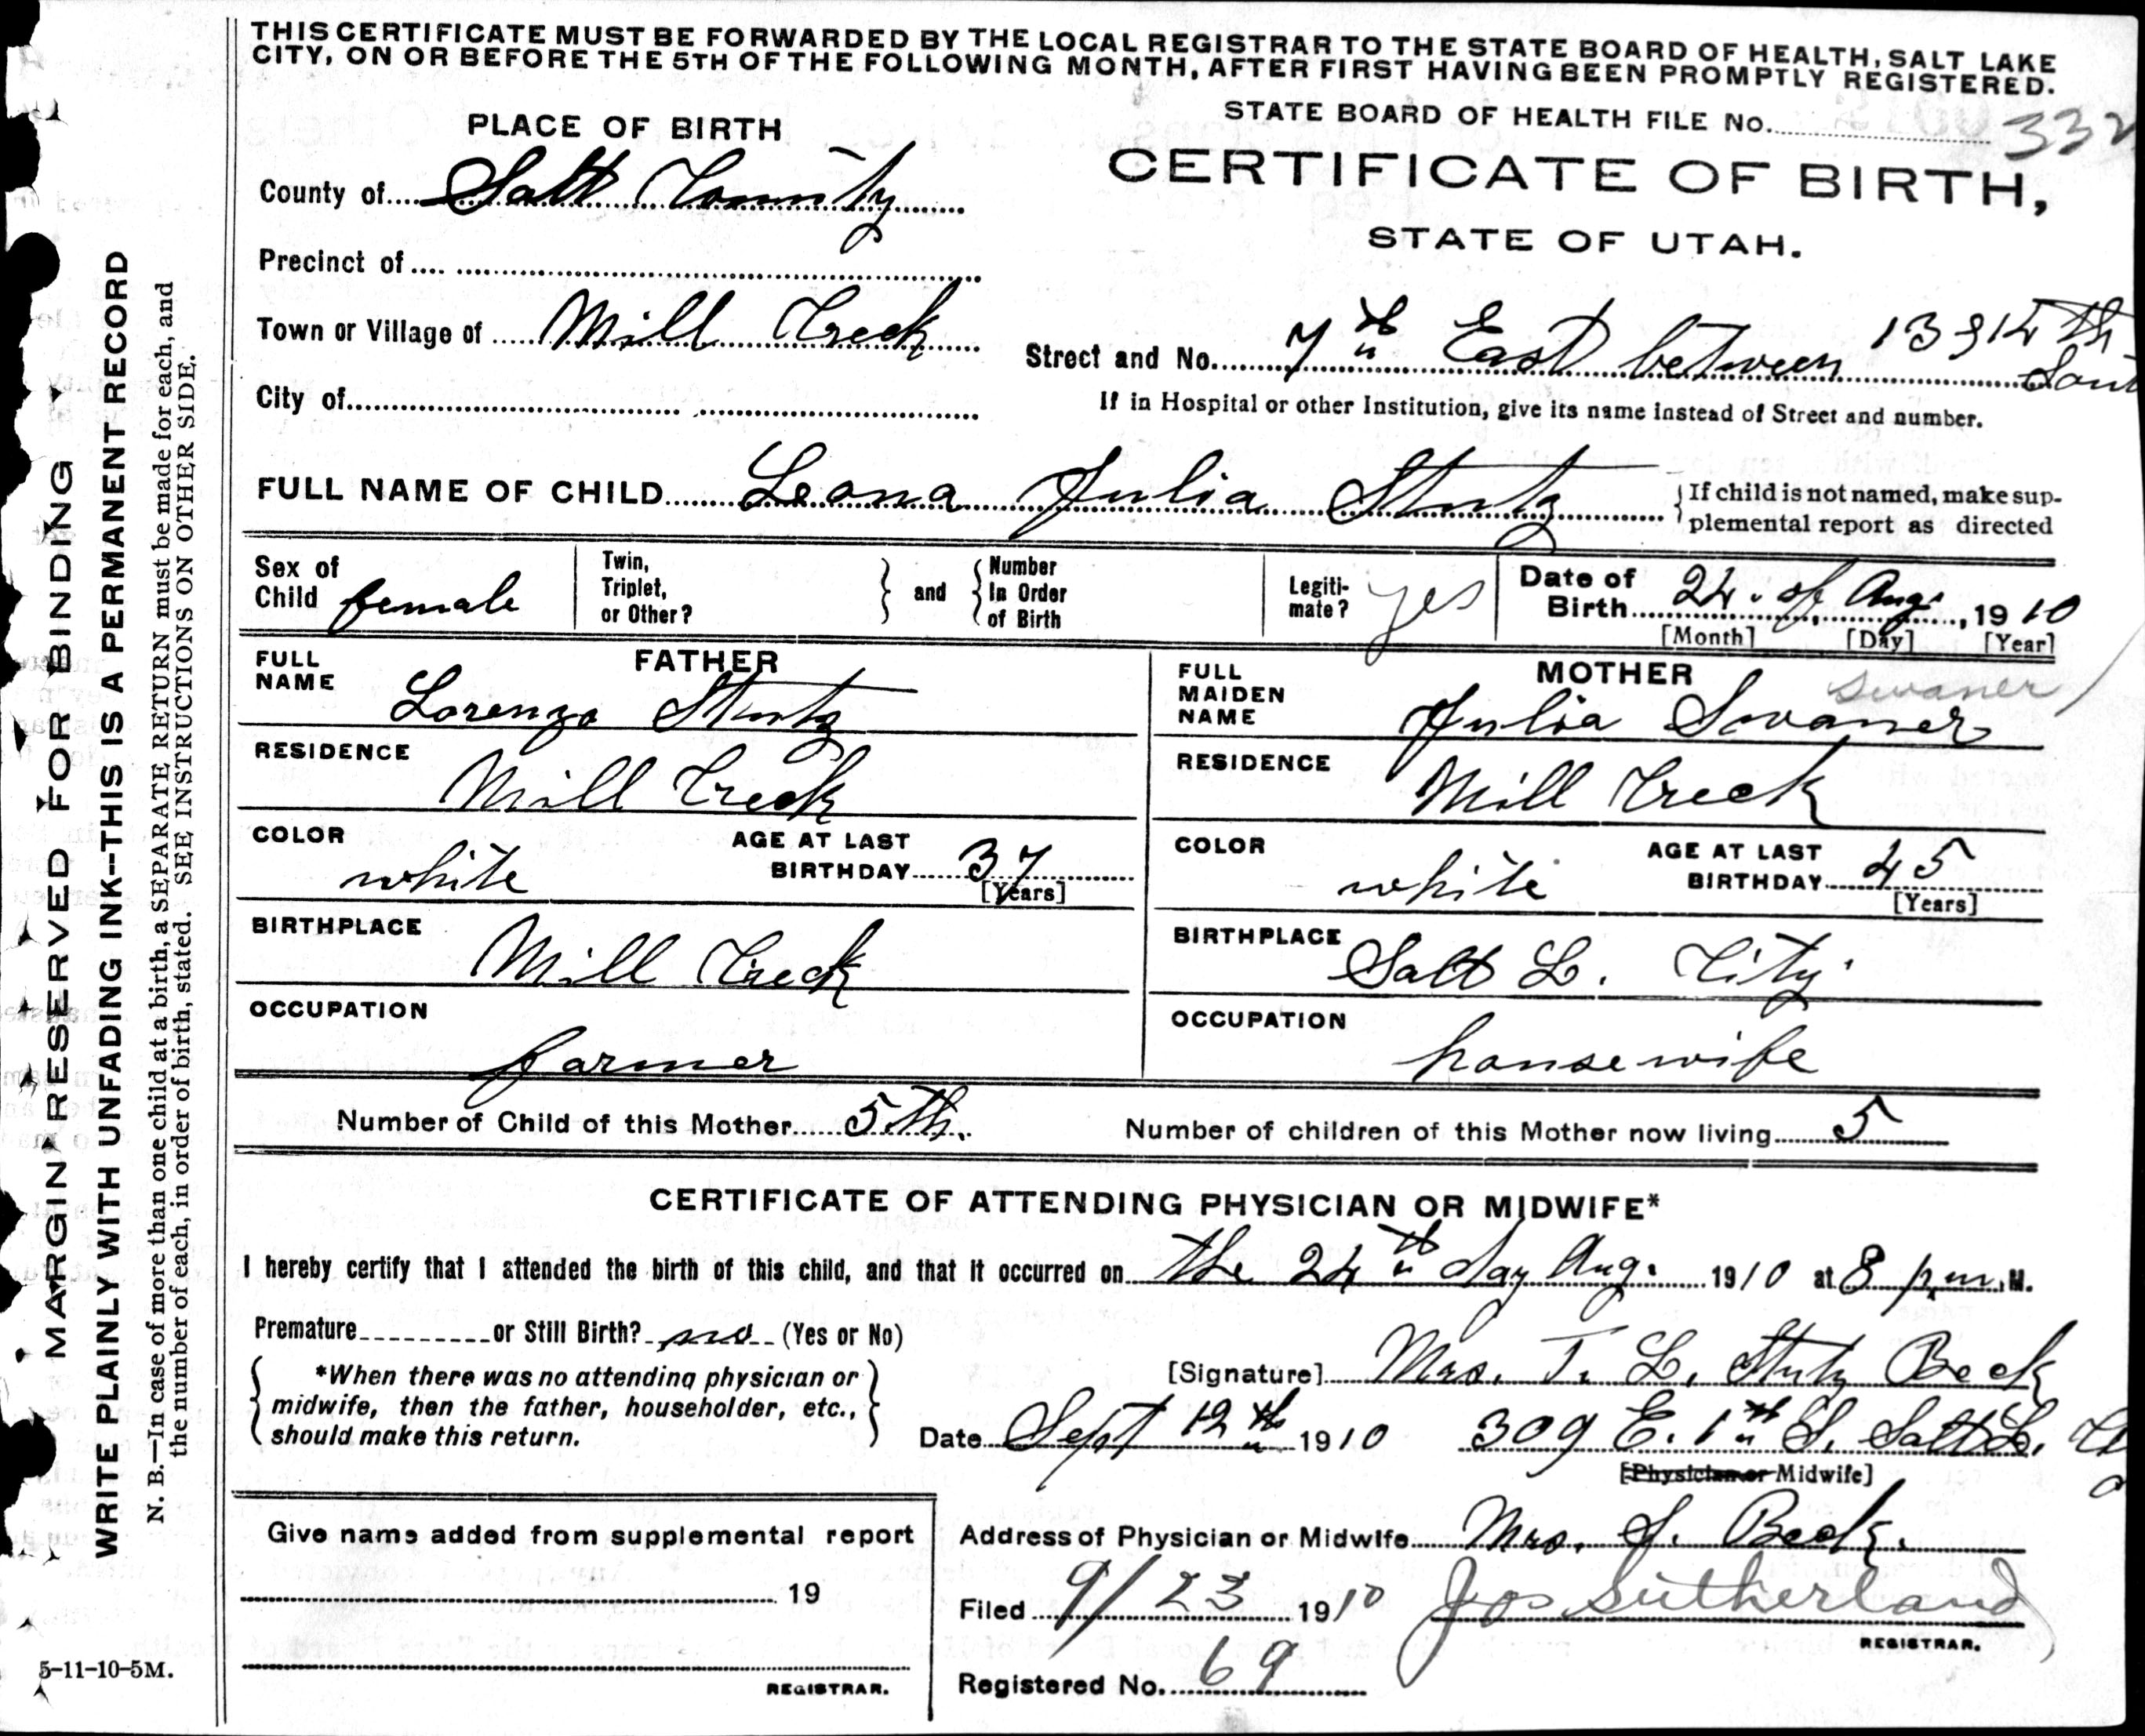 THIS CERTIFICATE MUST BE FORWARDED BY THE LOCAL REGISTRAR TO THE STATE BOARD OF HEALTH, SALT LAKE
CITY, ON OR BEFORE THE 5TH OF THE FOLLOWING MONTH, AFTER FIRST HAVING BEEN PROMPTLY REGISTERED.
STATE BOARD OF HEALTH FILE No. 332
PLACE OF BIRTH
CERTIFICATE OF BIRTH,
STATE OF UTAH.
County of Salt County
Precinct of
Town or Village of Mill Creek
Street and No. 7th East between 13 & 14th
South
City of
If in Hospital or other Institution, give its name instead of Street and number.
FULL NAME OF CHILD Leona Julia Stutz
If child is not named, make sup-
plemental report as directed
Sex of Child female
Twin, Triplet, or Other?
and
Number In Order of Birth
Legiti-mate? yes
Date of Birth 24. of Aug. , 1910
[Month] [Day] [Year]
FATHER
FULL NAME Lorenzo Stutz
RESIDENCE Mill Creek
COLOR white
AGE AT LAST BIRTHDAY 37
[Years]
BIRTHPLACE Mill Creek
OCCUPATION farmer
MOTHER
Swaner
FULL MAIDEN NAME Julia Swaner
RESIDENCE Mill Creek
COLOR white
AGE AT LAST BIRTHDAY 45
[Years]
BIRTHPLACE Salt L. City
OCCUPATION housewife
Number of Child of this Mother 5th.
Number of children of this Mother now living 5
CERTIFICATE OF ATTENDING PHYSICIAN OR MIDWIFE*
I hereby certify that I attended the birth of this child, and that it occurred on the 24th day Aug. 1910 at 8 p.m. M.
Premature or Still Birth? no (Yes or No)
*When there was no attending physician or
midwife, then the father, householder, etc.,
should make this return.
[Signature] Mrs. T. L. Stutz Beck
Date Sept 12th 1910 309 E. 1th S. Salt L.
[Physician or Midwife]
Give name added from supplemental report
19
REGISTRAR.
Address of Physician or Midwife Mrs. S. Beck.
Filed 9/23 1910 Jos Sutherland
REGISTRAR.
Registered No. 69
MARGIN RESERVED FOR BINDING
WRITE PLAINLY WITH UNFADING INK--THIS IS A PERMANENT RECORD
N. B.—In case of more than one child at a birth, a SEPARATE RETURN must be made for each, and
the number of each, in order of birth, stated. SEE INSTRUCTIONS ON OTHER SIDE.
5-11-10-5M.